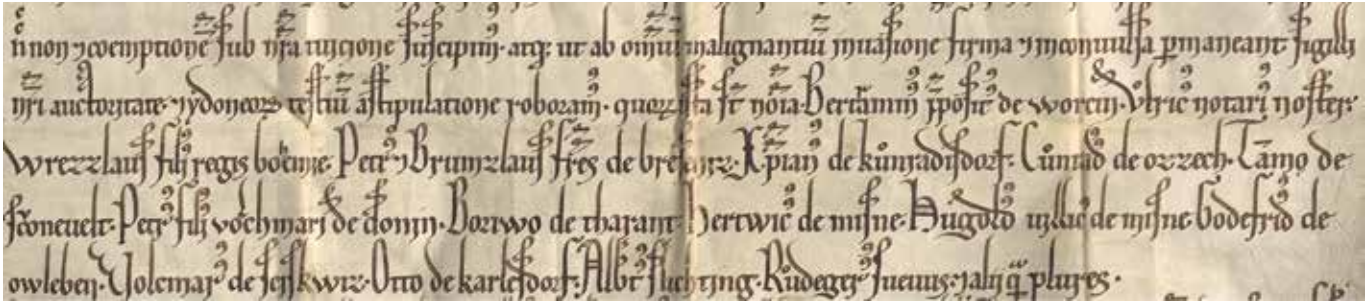 non ⁊ coemptionē sub nr̄a tuicione suscipim᷒· atq; ut ab omiū malignantiū inuasione firma ⁊ inconuulsa p̲maneant sigilli
nr̄i auctoritate· ⁊ ydoneoꝝ testiū astipulatione roboram᷒· quoꝝ ista st̄ noı̄a· Bertram̄ p̄posit᷒ de worcin· Vlric᷒ notari᷒ noster·
wrezzlaus fili᷒ regis boemie· Petr᷒ ⁊ Brunzlaus fr̄es de· Xp̄ian᷒ de kůnradisdorf· Cůnrad᷒ de ozzech· Tāmo de
sconeuelt· Petr᷒ fili᷒ volchmari de donin· Boriwo de tharant· Hertwic᷒ de misne· Hugold᷒ uillic᷒ de misne· Godefrid᷒ de
owleben· Volcmar᷒ de· Otto de karlesdorf· Albt᷒ fluchting· Růdeger᷒ sueuus· ⁊ alij qͣ plures·